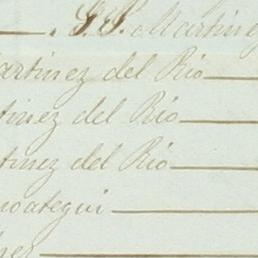 G. P. Martinez
artinez del Rio
tinez del Rio
tinez del Rio
noategui